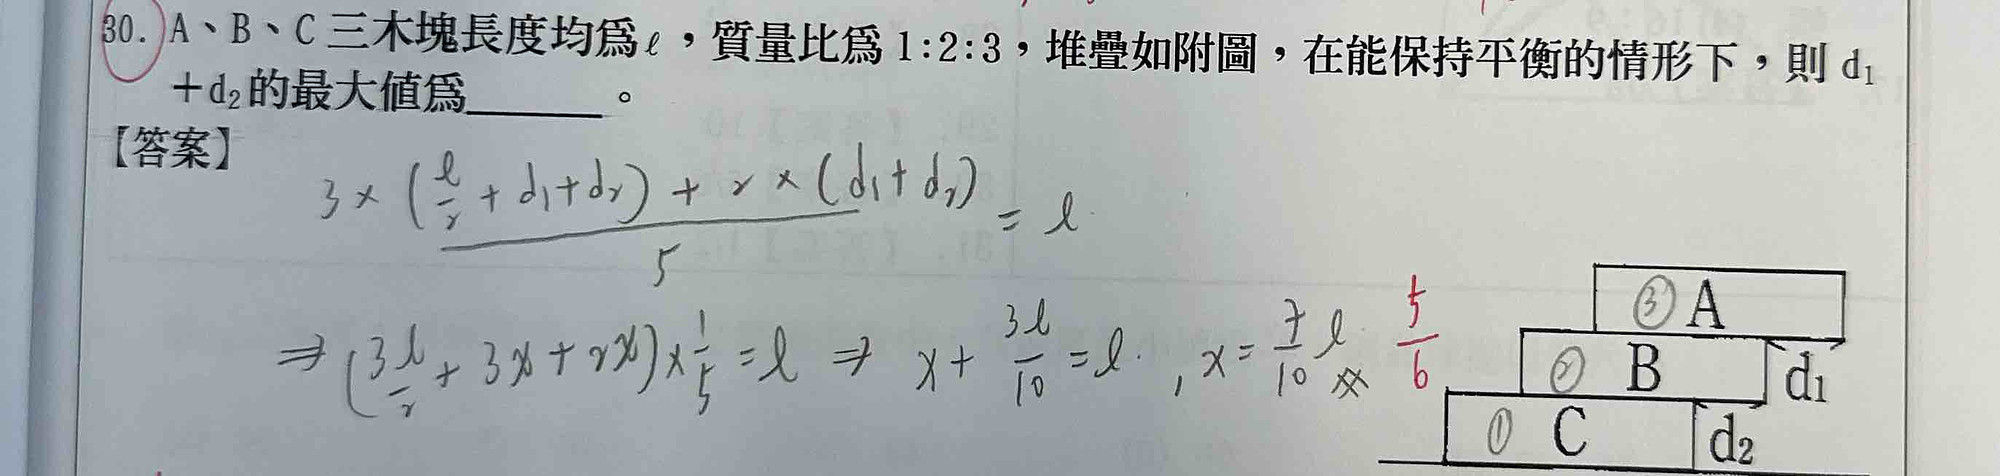 30. A、B、C 三木塊長度均為ℓ，質量比為 1:2:3，堆疊如附圖，在能保持平衡的情形下，則 d₁
＋d₂的最大值為______。
【答案】
(3×(ℓ/2+d₁+d₂)+2×(d₁+d₂))/5 = ℓ
⇒ (3ℓ/2+3x+2x)×1/5=ℓ ⇒ x+3ℓ/10=ℓ, x=7/10 ℓ
5/6
③ A
② B d₁
① C d₂